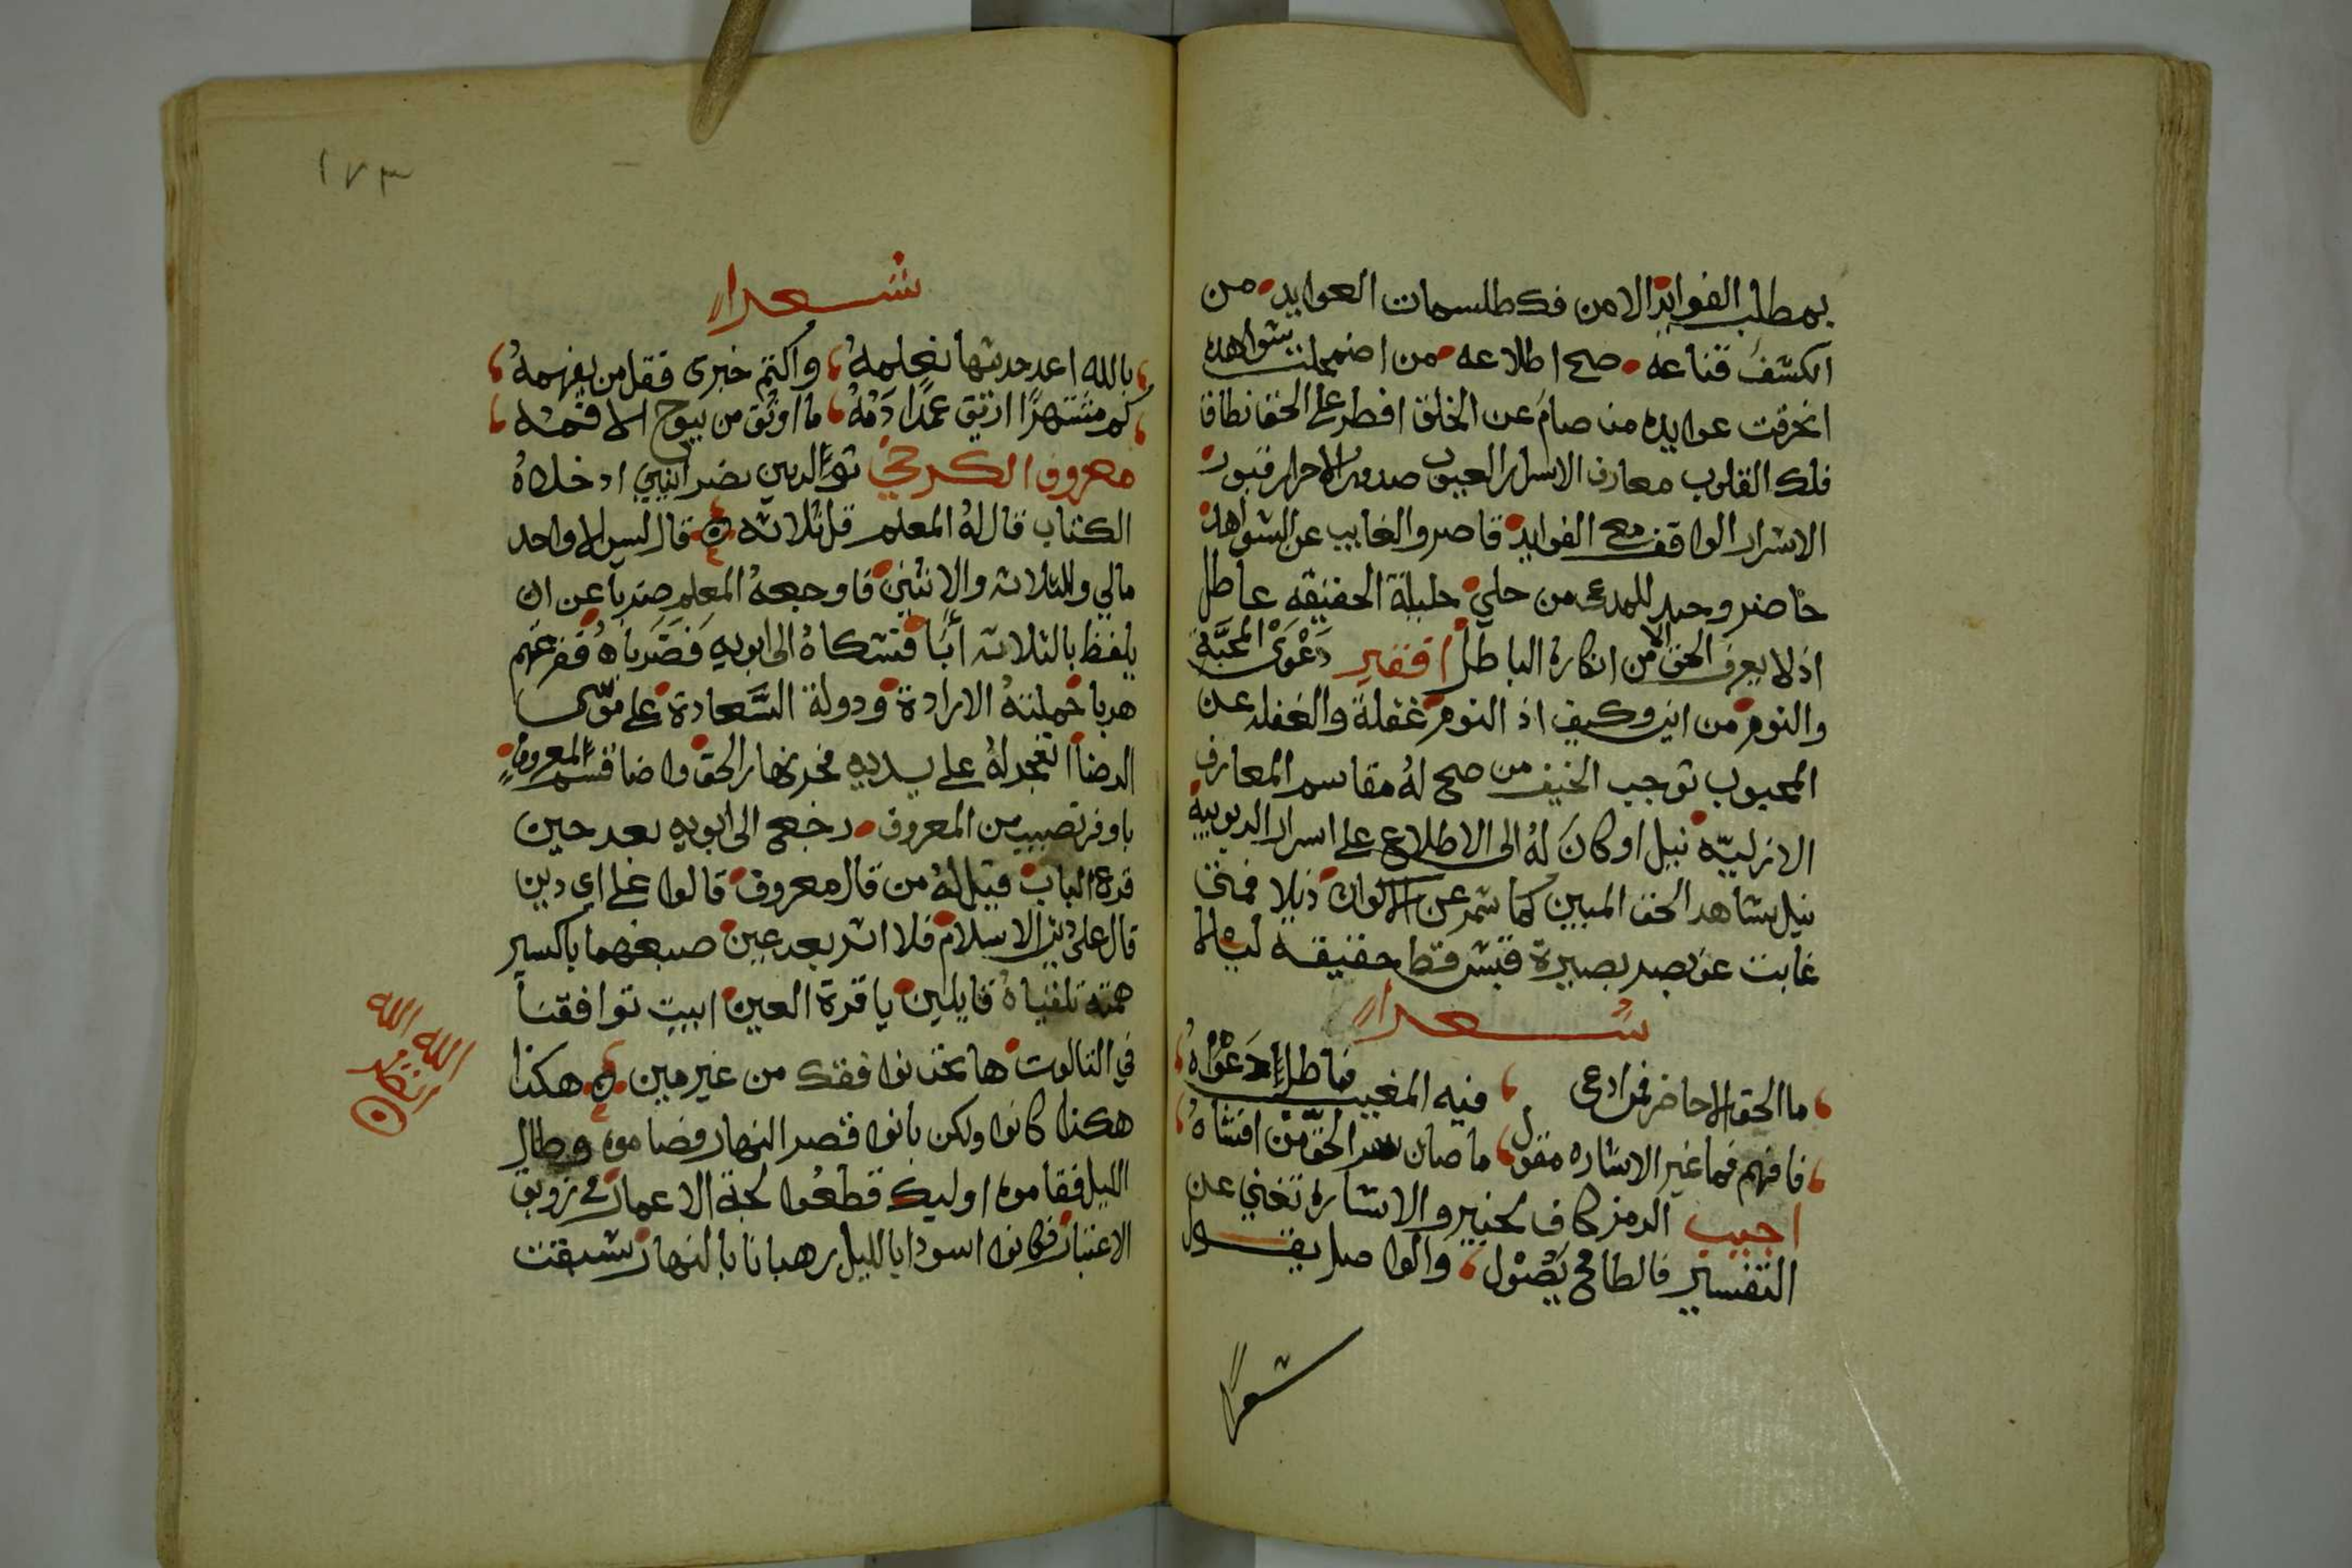 بمطلب الفوايد الا من فك طلسمات العوايد من
انكشف قناعه صح اطلاعه من اضمحلت شواهده
انخرقت عوايده من صام عن الخلق افطر على الحق نطاق
فلك القلوب معارف الاسرار العيوب صدور الاحرار قبور
الاسرار الواقف مع الفوايد قاصر والغايب عن الشواهد
حاضر وجيد للمدعى من حلي حليلة الحقيقه عاطل
اذ لا يعرف الحق الا من انكاره الباطل افقير دَعْوَى المحبَّة
والنوم من اين وكيف اذ النوم غفلة والغفله عن
المحبوب توجب الحيف من صح له مقاسم المعارف
الازليّه نيل او كانَ لهُ الى الاطلاع على اسرار الربوبية
نيل يشاهد الحق المبين كما شمر عن الاكوان ذيلا فمتى
غابت عن بصر بصيرة قبس قط حقيقة ليلا
شعرا
ما الحق الا حاضر فمن ادعى فيه المغيب فباطل دَعْوَاهُ
فافهم فما غير الاشاره مقول ما صان سر الحق من افشاهُ
اجيب الرمز كاف لخبير والاشاره تغني عن
التفسير فالطامح يَصُول والواصل يقول
شعرا
١٧٣
شعرا
بالله اعد حديثها نعلمهُ واكتم خبرى فقل من يفهمهُ
كم مشتهرًا اريق عمدًا دَمُهُ ما اوثق من يبوح الا فمه
معروف الكرخي تو الدين نصرانيين ادخلاهُ
الكتاب قال لهُ المعلم قل ثلاثه قال ليس الا واحد
مالي وللثلاثه والاثنين فاوجعهُ المعلم ضربا عن ان
يلفظ بالثلاثه أبَا فشكاهُ الى ابويه فَضَرباهُ ففر عنهم
هربا حملتهُ الارادة ودولة السَّعادة على موسى
الرضا انفجر له على يديه فجر نهار الحق واضا قسم المعروف
باوفر نصيب من المعروف رجع الى ابويه بعد حين
قرع الباب قيل لهُ من قال معروف قالوا على اى دين
قال على دين الاسلام فلا اثر بعد عين صبغهما باكسير
همته تلقياهُ قايلين يا قرة العين ابيت توافقنا
في التالوت ها نحن نوافقك من غير مين هكذا
هكذا كانوا ولكن بانوا قصر النهار فصاموه وطال
الليل فقاموه اوليك قطعوا لجة الاعمار في زورق
الاعتبار فكانوا اسودا بالليل رهبانا بالنهار شدقت
الله
الله